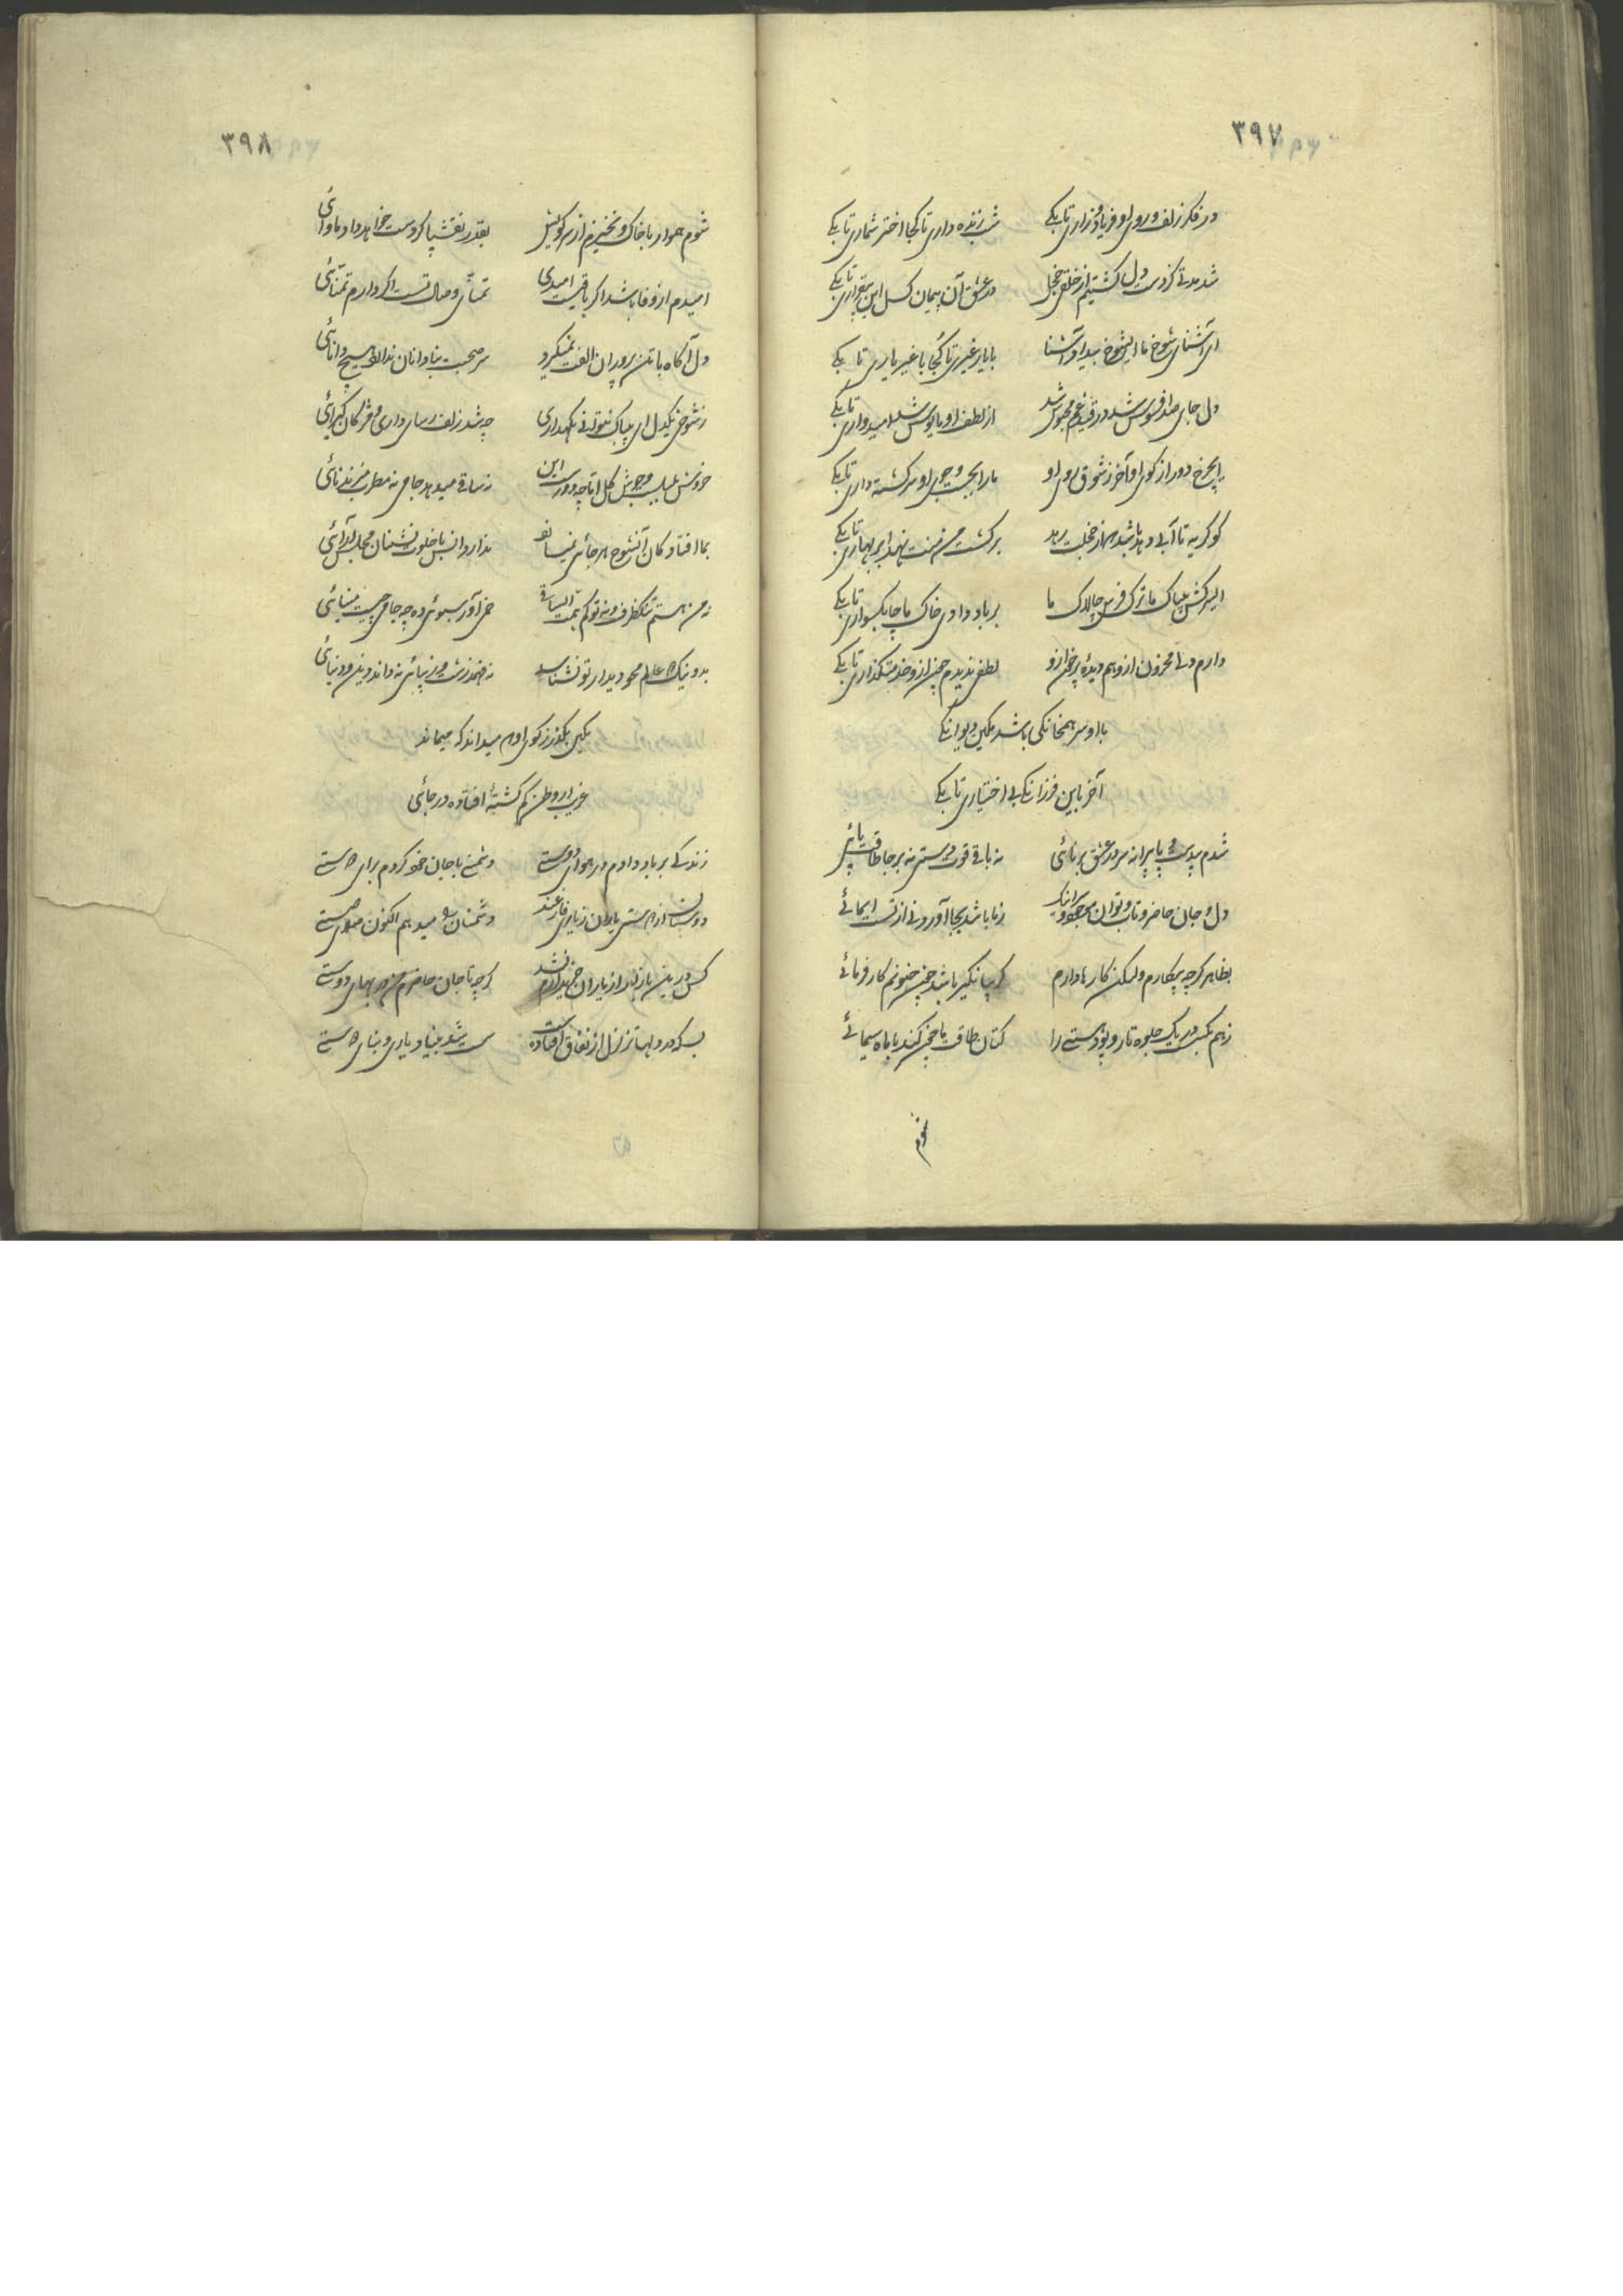 ۳۹۷
در فکر زلف و روی او فریاد و زاری تا بکی شب زنده داری تا کجا اختر شماری تا بکی
شد مدتی کز دست دل گشتیم از خلق خجل در عشق آن پیمان گسل این بیقراری تا بکی
ای آشنای شوخ ما ای شوخ بیداد آشنا با یار غیری تا کجا با غیر یاری تا بکی
دل جای صد افسوس شد در قید غم محبوس شد از لطف او مایوس شد امیدواری تا بکی
ای چرخ دور از کوی او آخر ز شوق روی او ما را بجست و جوی او سرگشته داری تا بکی
کو گریه تا آبی دهد باشد هم از خجلت رهد بر کشت من منت نهد ابر بهاری تا بکی
ای سرکش بیباک ما ترک فرس چالاک ما بر باد دادی خاک ما چابکسواری تا بکی
دارم دلی محزون ازو هم دیده پر خون ازو لطفی ندیدم چون ازو خدمتگذاری تا بکی
با او سر همخانگی باشد مکین دیوانگی
آخر باین فرزانگی بی اختیاری تا بکی
شدم بیدست و پا پیرانه سر در عشق برنائی نه باقی قوت دستی نه بر جا طاقت پائی
دل و جان حاضر و تاب و توان موجود زنها باشد بجا آوردنی از تست ایمائی
بظاهر گرچه بیکارم ولیکن کارها دارم گریبانگیر باشد چون جنونم کارفرمائی
ز هم بگسست در یک جلوه تار و پود هستی را کتان طاقت ما چون کند با ماه سیمائی
شوم
۳۹۸
شوم هموار با خاک و نخیزم از سر کویش بقدر نقش پا گر دست خواهد داد ماوائی
امیدم از وفا باشد اگر باقیست امیدی تمنای وصال تست اگر دارم تمنائی
دل آگاه با تن پروران الفت نمیگیرد سر صحبت بنادانان ندارد هیچ دانائی
ز شوخی یکدل ای بیباک نتوانی نگهداری چه شد زلف رسای داری و مژگان گیرائی
خروش بلبل و جوش گل اما چه دورست این نه ساقی میدهد جامی نه مطرب میزند نائی
بما افتاد کان آتشوخ هر جائی نمیسازد ندارد انس با خلوت نشینان مجلس آرائی
نه من هستم تنکظرف و نه تو کم همت ای ساقی خم آور سبوئی ده چه جامی چیست مینائی
بد و نیک دو عالم محو دیدار تو نشناسد نه فهمد زشت و زیبائی نه داند دین و دنیائی
مکین بگذر ز کوی او دم میداند که میماند
غریب از وطن گم گشته افتاده در جائی
زندگی بر باد دادم در هوای دوستی دشمنی با جان خود کردم برای دوستی
دوستان از دوستی یاران ز یاری فارغند دشمنان را میدهم اکنون صلای دوستی
کس درین بازار از یاران خریدارم نشد گرچه تا جان حاضرم من در بهای دوستی
بسکه در دلها تزلزل از نفاق افتاده است سست شد بنیاد یاری و بنای دوستی